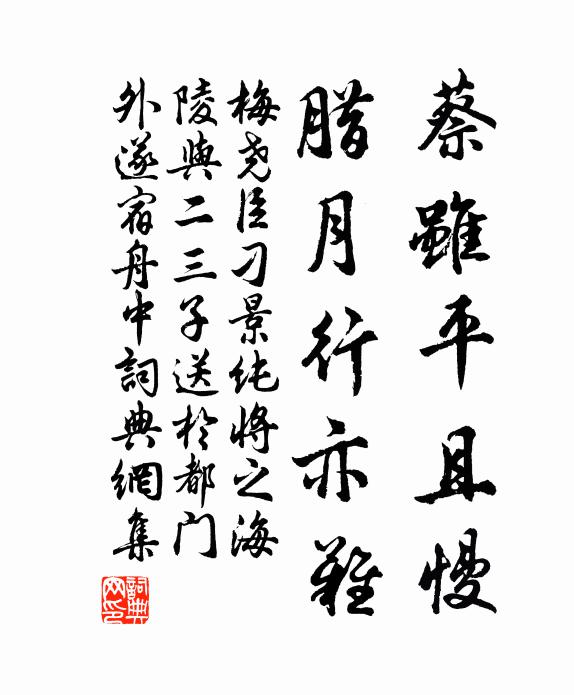 蔡雖平且慢
腊月行亦難
梅尧臣刁景纯將之海
陵與二三子送於都门
外遂宿舟中詞典網集
詞典網印